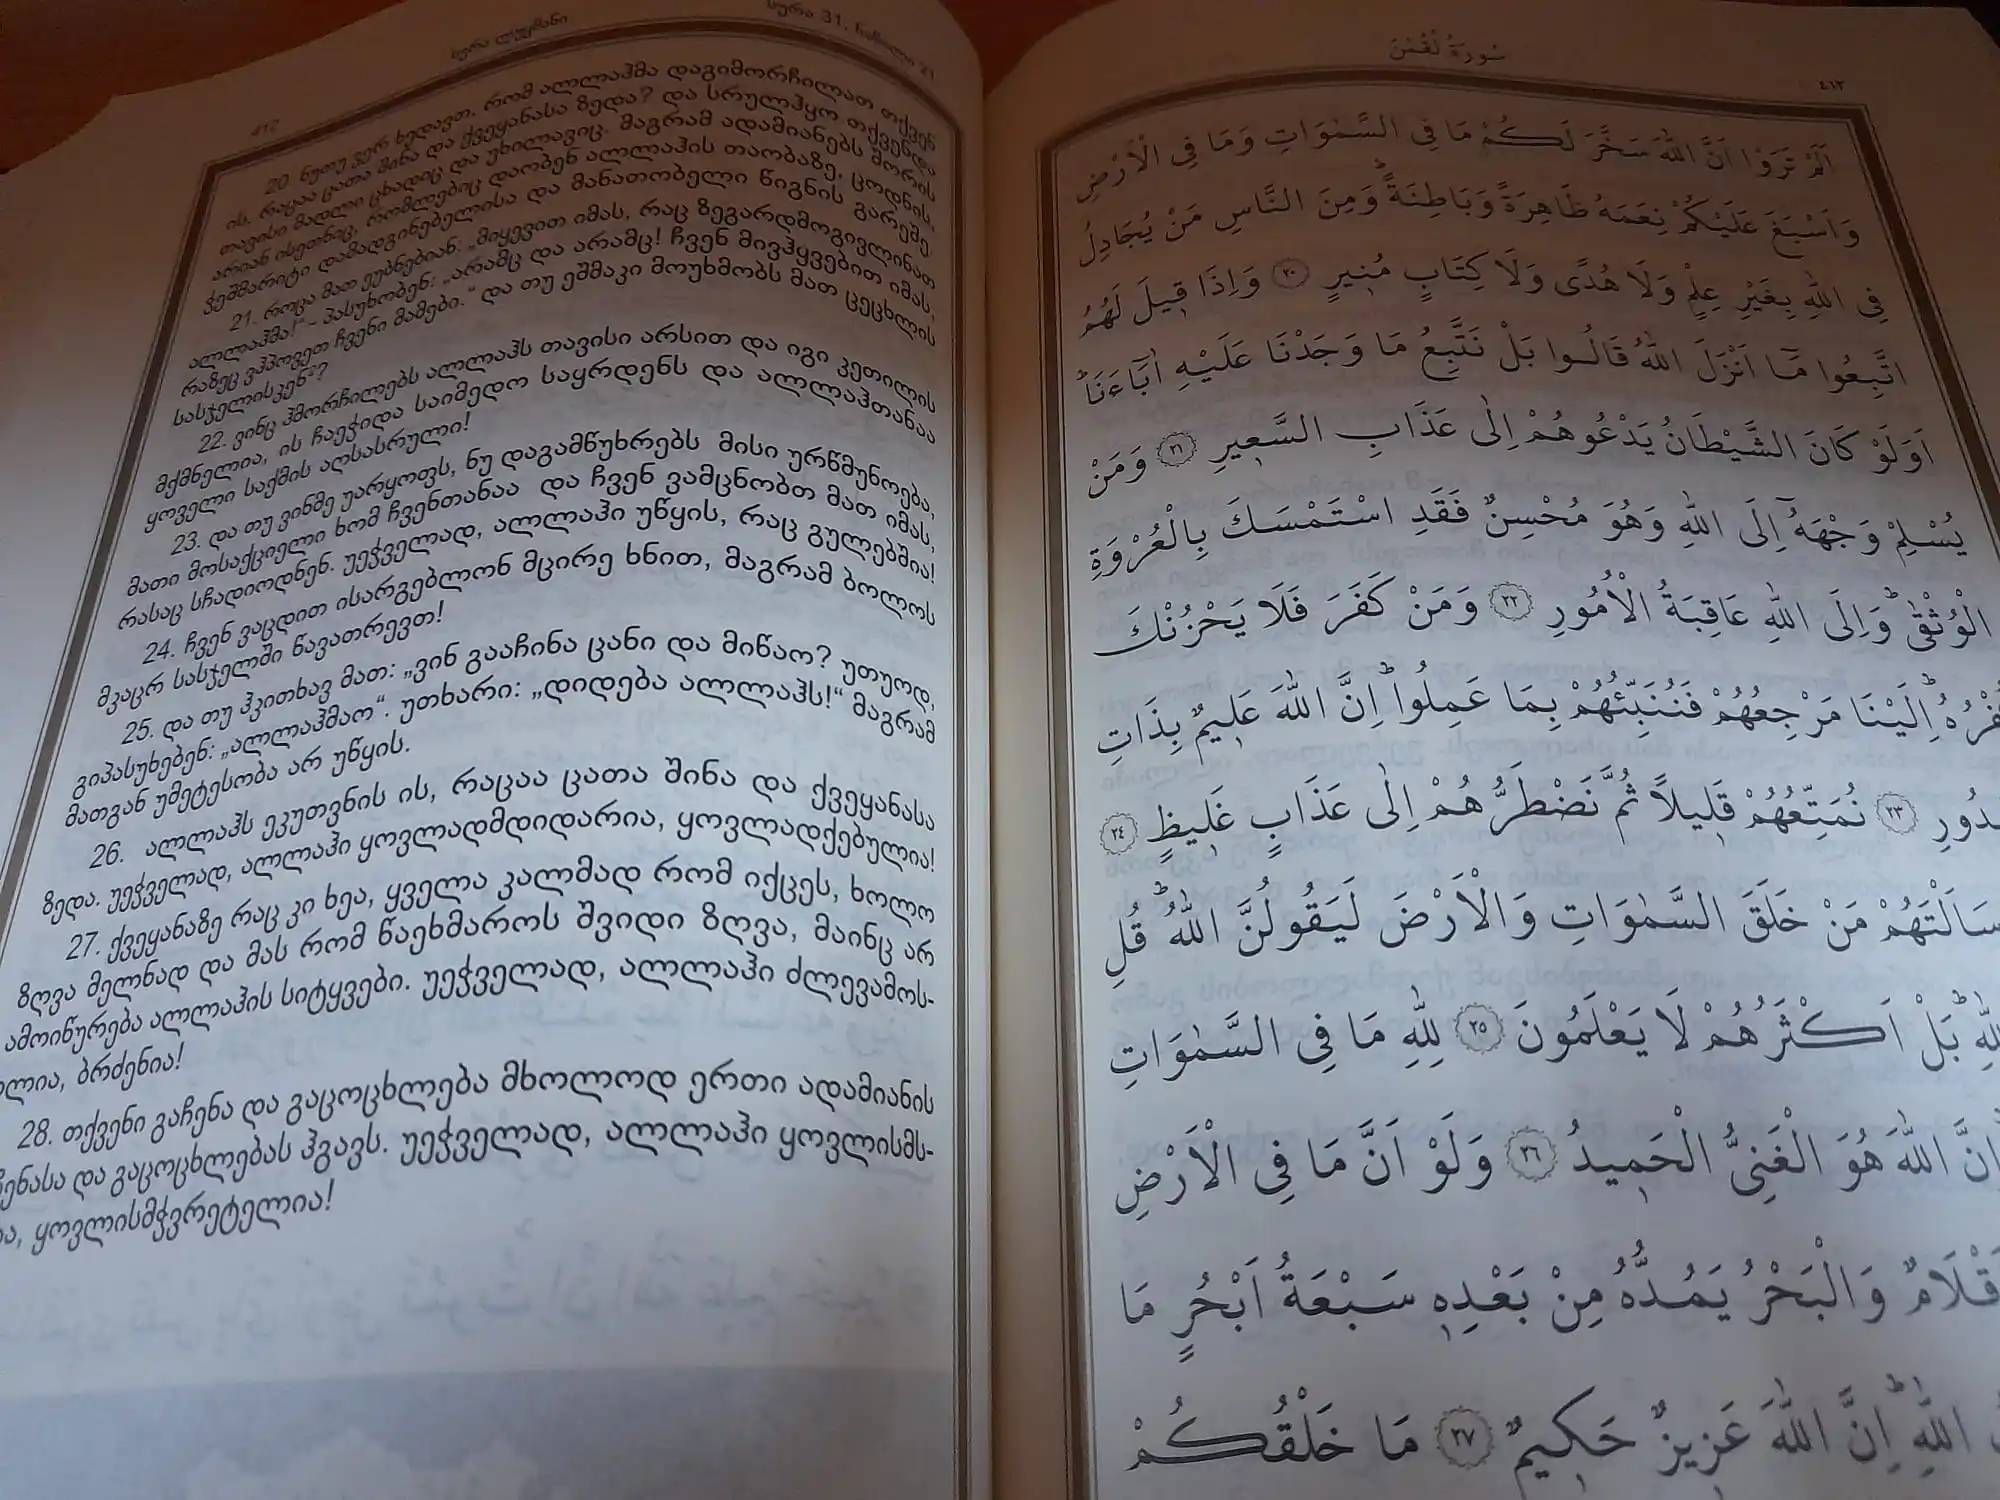 სურა ლუყმანი
სურა 31, ნაწილი 21
412
20. ნუთუ ვერ ხედავთ, რომ ალლაჰმა დაგიმორჩილათ თქვენ
ის, რაცაა ცათა შინა და ქვეყანასა ზედა? და სრულჰყო თქვენდა
თავისი მადლი ცხადიც და უხილავიც. მაგრამ ადამიანებს შორის
არიან ისეთნიც, რომლებიც დაობენ ალლაჰის თაობაზე, ცოდნის,
ჭეშმარიტი დამადგინებელისა და მანათობელი წიგნის გარეშე.
21. როცა მათ ეუბნებიან: „მიყევით იმას, რაც ზეგარდმოგივლინათ
ალლაჰმა!“ - პასუხობენ: „არამც და არამც! ჩვენ მივჰყვებით იმას,
რაზეც ვჰპოვეთ ჩვენი მამები.“ და თუ ეშმაკი მოუხმობს მათ ცეცხლის
სასჯელისკენ“?
22. ვინც ჰმორჩილებს ალლაჰს თავისი არსით და იგი კეთილის
მქმნელია, ის ჩაეჭიდა საიმედო საყრდენს და ალლაჰთანაა
ყოველი საქმის აღსასრული!
23. და თუ ვინმე უარყოფს, ნუ დაგამწუხრებს მისი ურწმუნოება,
მათი მოსაქციელი ხომ ჩვენთანაა და ჩვენ ვამცნობთ მათ იმას,
რასაც სჩადიოდნენ. უეჭველად, ალლაჰი უწყის, რაც გულებშია!
24. ჩვენ ვაცდით ისარგებლონ მცირე ხნით, მაგრამ ბოლოს
მკაცრ სასჯელში წავათრევთ!
25. და თუ ჰკითხავ მათ: „ვინ გააჩინა ცანი და მიწაო? უთუოდ,
გიპასუხებენ: „ალლაჰმაო“. უთხარი: „დიდება ალლაჰს!“ მაგრამ
მათგან უმეტესობა არ უწყის.
26. ალლაჰს ეკუთვნის ის, რაცაა ცათა შინა და ქვეყანასა
ზედა. უეჭველად, ალლაჰი ყოვლადმდიდარია, ყოვლადქებულია!
27. ქვეყანაზე რაც კი ხეა, ყველა კალმად რომ იქცეს, ხოლო
ზღვა მელნად და მას რომ წაეხმაროს შვიდი ზღვა, მაინც არ
ამოიწურება ალლაჰის სიტყვები. უეჭველად, ალლაჰი ძლევამოს-
ილია, ბრძენია!
28. თქვენი გაჩენა და გაცოცხლება მხოლოდ ერთი ადამიანის
ჩენასა და გაცოცხლებას ჰგავს. უეჭველად, ალლაჰი ყოვლისმს-
ია, ყოვლისმჭვრეტელია!
سُورَةُ لُقْمٰنَ
٤١٢
اَلَمْ تَرَوْا اَنَّ اللّٰهَ سَخَّرَ لَكُمْ مَا فِى السَّمٰوَاتِ وَمَا فِى الْاَرْضِ
وَاَسْبَغَ عَلَيْكُمْ نِعَمَهُ ظَاهِرَةً وَبَاطِنَةًۜ وَمِنَ النَّاسِ مَنْ يُجَادِلُ
فِى اللّٰهِ بِغَيْرِ عِلْمٍ وَلَا هُدًى وَلَا كِتَابٍ مُنٖيرٍ ٢٠ وَاِذَا قٖيلَ لَهُمُ
اتَّبِعُوا مَٓا اَنْزَلَ اللّٰهُ قَالُوا بَلْ نَتَّبِعُ مَا وَجَدْنَا عَلَيْهِ اٰبَٓاءَنَاۜ
اَوَلَوْ كَانَ الشَّيْطَانُ يَدْعُوهُمْ اِلٰى عَذَابِ السَّعٖيرِ ٢١ وَمَنْ
يُسْلِمْ وَجْهَهُٓ اِلَى اللّٰهِ وَهُوَ مُحْسِنٌ فَقَدِ اسْتَمْسَكَ بِالْعُرْوَةِ
الْوُثْقٰىۜ وَاِلَى اللّٰهِ عَاقِبَةُ الْاُمُورِ ٢٢ وَمَنْ كَفَرَ فَلَا يَحْزُنْكَ
كُفْرُهُۜ اِلَيْنَا مَرْجِعُهُمْ فَنُنَبِّئُهُمْ بِمَا عَمِلُواۜ اِنَّ اللّٰهَ عَلٖيمٌ بِذَاتِ
الصُّدُورِ ٢٣ نُمَتِّعُهُمْ قَلٖيلًا ثُمَّ نَضْطَرُّهُمْ اِلٰى عَذَابٍ غَلٖيظٍ ٢٤
سَاَلْتَهُمْ مَنْ خَلَقَ السَّمٰوَاتِ وَالْاَرْضَ لَيَقُولُنَّ اللّٰهُۜ قُلِ
لِلّٰهِۜ بَلْ اَكْثَرُهُمْ لَا يَعْلَمُونَ ٢٥ لِلّٰهِ مَا فِى السَّمٰوَاتِ
اِنَّ اللّٰهَ هُوَ الْغَنِىُّ الْحَمٖيدُ ٢٦ وَلَوْ اَنَّ مَا فِى الْاَرْضِ
اَقْلَامٌ وَالْبَحْرُ يَمُدُّهُ مِنْ بَعْدِهٖ سَبْعَةُ اَبْحُرٍ مَا
اللّٰهِۜ اِنَّ اللّٰهَ عَزٖيزٌ حَكٖيمٌ ٢٧ مَا خَلْقُكُمْ